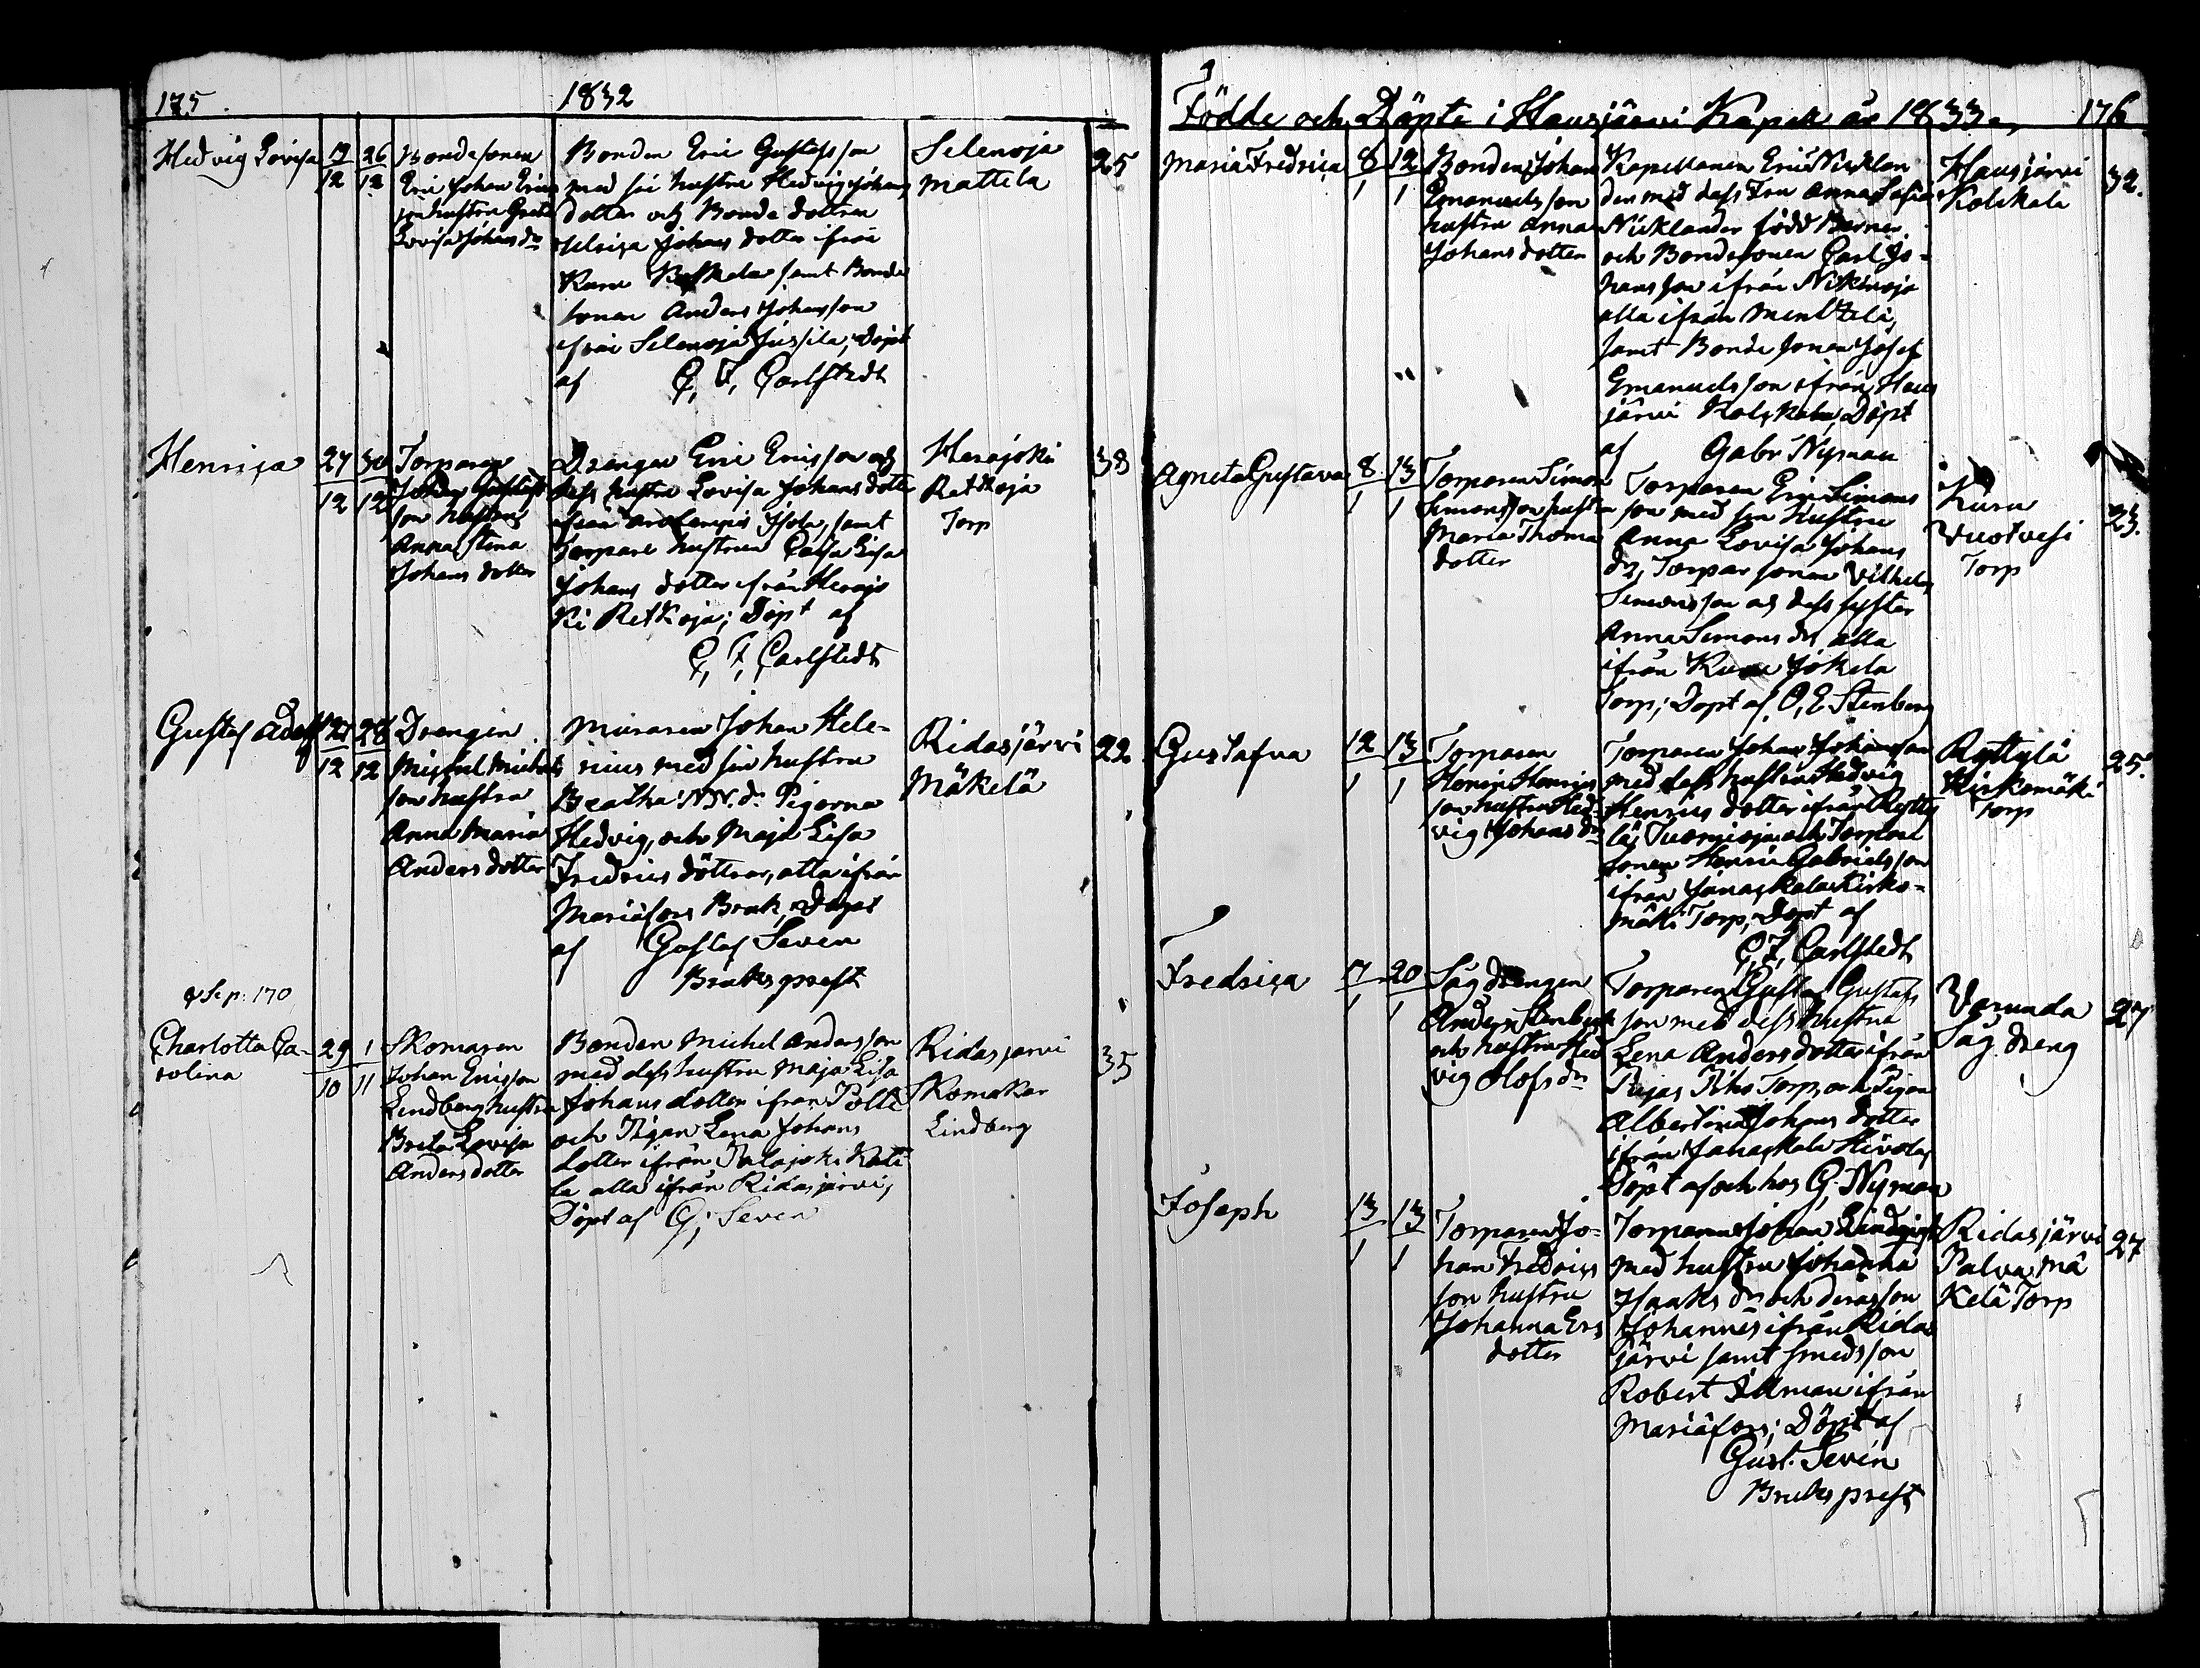 175. 1832
Hedvig Lovisa 19/12 26/12
Bondesonen
Eric Johan Erics
son hustru Greta
Lovisa Johans dr
Bonden Eric Gustafsson
med sin hustru Hedvig Johans
dotter och Bonde dottren
Ulrica Johans dotter ifrån
Kuru samt Bonde
sonen Anders Johansson
ifrån Selenoja Jussila; Döpt
af C. F. Carlstedt
Selenoja
Mattila
25
Henrica 27/12 30/12
Torparen
Johan Gustafs
son hustru
Anna Stina
Johans dotter
Drängen Eric Ericsson och
dess hustru Lovisa Johans dotter
ifrån Arolampi Isola, samt
Torpare hustrun Caisa Lisa
Johans dotter ifrån Herajo
ki Retkoja; Döpt af
C. F. Carlstedt
Herajoki
Retkoja
Torp
38
Gustaf Adolf 27/12 28/12
Drengen
Michel Michels
son hustru
Anna Maria
Anders dotter
Muraren Johan Hele-
nius med sin hustru
Beatha N.N. dr Pigorna
Hedvig, och Maja Lisa
Fredrics döttrar, alla ifrån
Mariäfors Bruk, Döpt
af Gustaf Seven
Bruks prest
Ridasjärvi
Mäkelä
22
170
Charlotta Ca-
rolina
29/10 1/11
Skomaren
Johan Ericsson
Lindberg hustru
Brita Lovisa
Anders dotter
Bonden Michel Andersson
med dess hustru Maja Lisa
Johans dotter ifrån Pölli
och Pigan Lena Johans
dotter ifrån Palajoki Kuti
la alla ifrån Ridasjärvi,
Döpt af G. Seven
Ridasjärvi
Skomakar
Lindberg
35
Födde och Döpte i Hausjärvi Kapell år 1833. 176
Maria Fredrica 8/1 12/1
Bonden Johan
Emanuelsson
hustru Anna
Johans dotter
Kapellanen Eric Nicklan
der med dess Fru Anna Sofia
Nicklander född Berner
och Bondesonen Carl Jo-
hansson ifrån Nikinoja
alla ifrån Menttilä,
samt Bonde sonen Josef
Emanuelsson ifrån Haus
järvi Kolckala, Döpt
af Gabr Nyman
Hausjärvi
Kolckala
32.
Agneta Gustava 8/1 13/1
Torparen Simon
Simonsson hustru
Maria Thomas
dotter
Torparen Eric Simons
son med sin hustru
Anna Lovisa Johans
dr, Torpar sonen Vilhelm
Simonsson och dess syster
Anna Simons dr alla
ifrån Kuru Jokela
Torp; Döpt af O. E. Stenberg
Kuru
Vuotvesi
Torp
23.
Gustafva 12/1 13/1
Torparen
Henric Henrics
son hustru Hed-
vig Johans dr
Torparen Johan Johansson
med dess hustru Hedvig
Henrics dotter ifrån Rytty
lä, Tuornioja och Torpare
sonen Henric Gabrielsson
ifrån Janackala Kirko-
mäki Torp; Döpt af
C. F. Carlstedt
Ryttylä
Kirkomäki
Torp
25.
Fredrica 17/1 20/1
Såg drengen
Anders Stenberg
och hustru Hed
vig Olofs dr
Torparen Gustav Gustafs
son med dess hustru
Lena Anders dotter ifrån
Torp, och Pigan
Albertina Johans dotter
ifrån Janackala Hivola,
Döpt af och hos G. Nyman
Varunda
Såg dreng
27
Joseph 13/1 13/1
Torparen Jo-
han Fredrics
son hustru
Johanna Ers
dotter
Torparen Johan Lindqvist
med hustru Johanna
Isaaks dr och deras son
Johannes ifrån Ridas
järvi samt smeds son
Robert Ullman ifrån
Mariäfors; Döpt af
Gust. Sevén
Bruks prest
Ridasjärvi
Palva Mä
kelä Torp
27